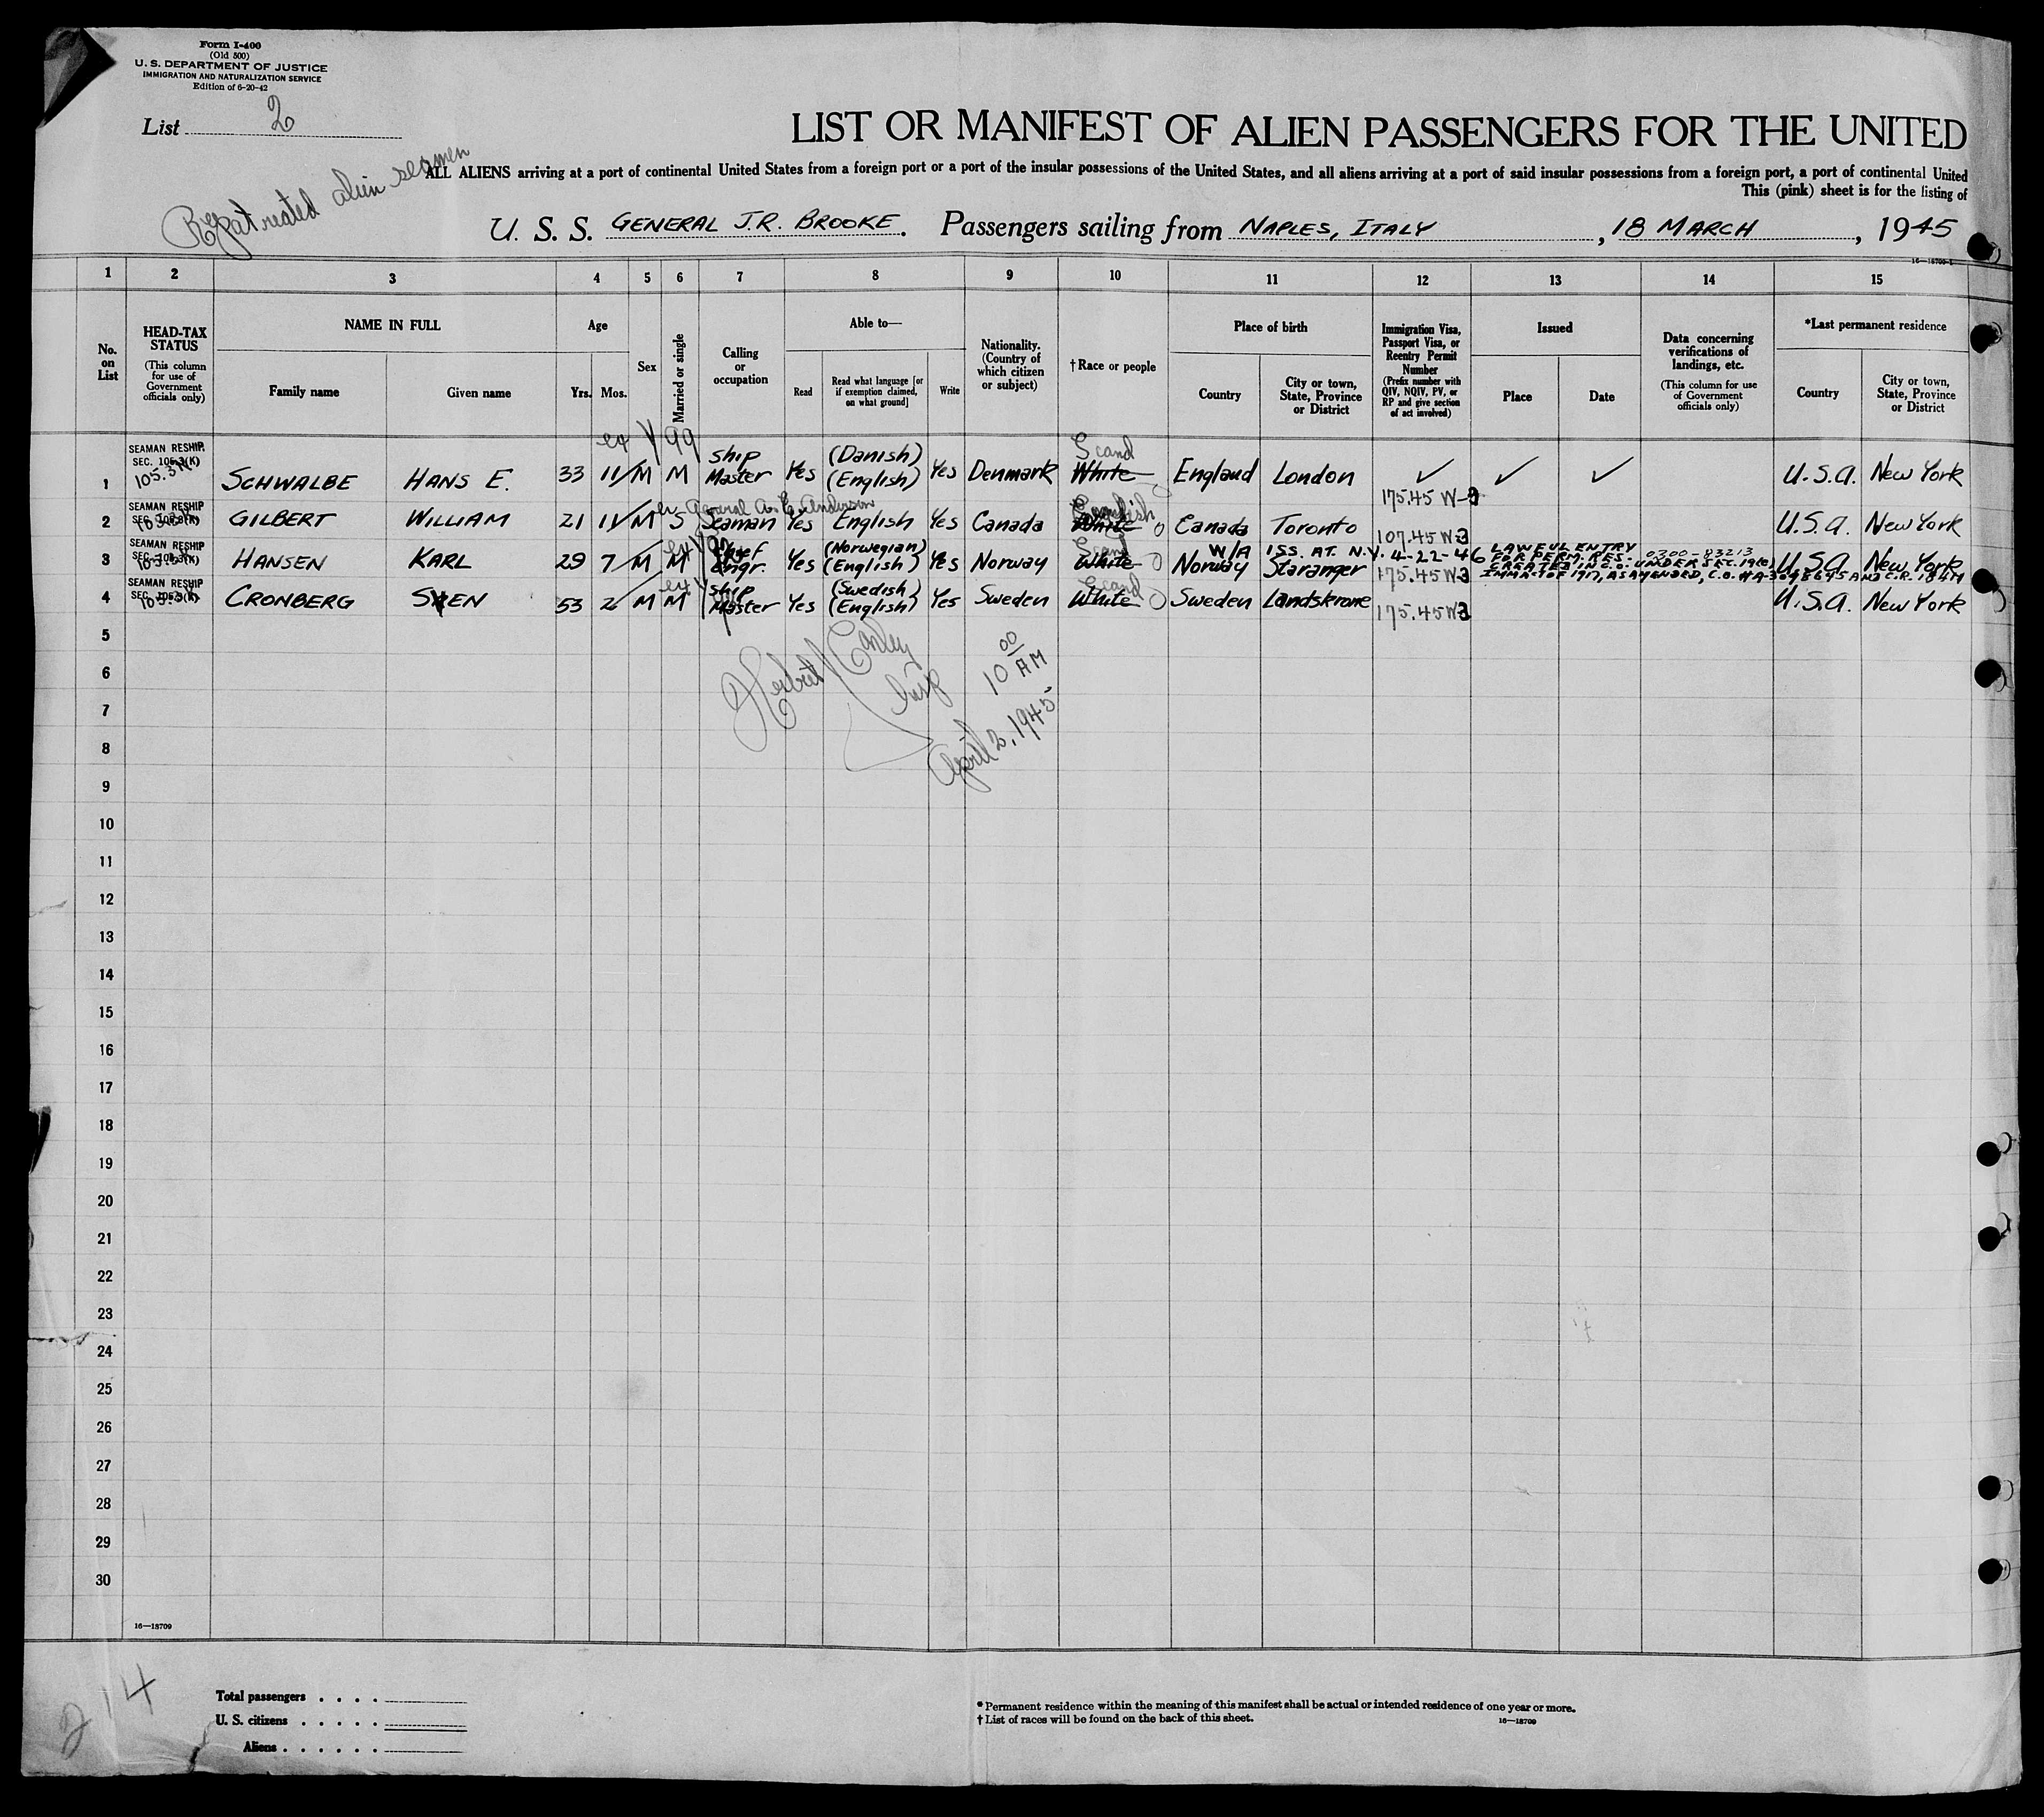 Form I-400
(Old 500)
U. S. DEPARTMENT OF JUSTICE
IMMIGRATION AND NATURALIZATION SERVICE
Edition of 6-20-42
List 2
LIST OR MANIFEST OF ALIEN PASSENGERS FOR THE UNITED
Repatriated alien seamen
ALL ALIENS arriving at a port of continental United States from a foreign port or a port of the insular possessions of the United States, and all aliens arriving at a port of said insular possessions from a foreign port, a port of continental United
This (pink) sheet is for the listing of
U. S. S. GENERAL J.R. BROOKE. Passengers sailing from NAPLES, ITALY, 18 MARCH, 1945
16—18709-1
1 2 3 4 5 6 7 8 9 10 11 12 13 14 15
No. on List
HEAD-TAX STATUS
(This column for use of Government officials only)
NAME IN FULL
Family name
Given name
Age
Yrs. Mos.
Sex
Married or single
Calling or occupation
Able to—
Read
Read what language [or if exemption claimed, on what ground]
Write
Nationality. (Country of which citizen or subject)
†Race or people
Place of birth
Country
City or town, State, Province or District
Immigration Visa, Passport Visa, or Reentry Permit Number
(Prefix number with QIV, NQIV, PV, or RP and give section of act involved)
Issued
Place
Date
Data concerning verifications of landings, etc.
(This column for use of Government officials only)
*Last permanent residence
Country
City or town, State, Province or District
SEAMAN RESHIP.
SEC. 105.3(K)
1 SCHWALBE HANS E. 33 11 M M Ship Master Yes (Danish) (English) Yes Denmark White Scand England London ✓ ✓ ✓ U.S.A. New York
175.45 W-3
SEAMAN RESHIP
SEC. 105.3(K)
ex General A. E. Anderson
2 GILBERT WILLIAM 21 11 M S Seaman Yes English Yes Canada White Canada Toronto U.S.A. New York
107.45 W-3
SEAMAN RESHIP
SEC. 105.3(K)
W/A ISS. AT. N.Y. 4-22-46 LAWFUL ENTRY
FOR PERM. RES. 0300-83213
CREATED IN C.O. UNDER SEC. 19(c)
IMM. ACT OF 1917, AS AMENDED, C.O.
3 HANSEN KARL 29 7 M M Chief Engr. Yes (Norwegian) (English) Yes Norway White Scand Norway Staranger 175.45 W-3 U.S.A. New York
SEAMAN RESHIP
SEC. 105.3(K)
4 CRONBERG SVEN 53 2 M M Ship Master Yes (Swedish) (English) Yes Sweden White Scand Sweden Landskrone 175.45 W-3 U.S.A. New York
5
Herbert Conley
Insp
10 00 AM
April 2, 1945
6
7
8
9
10
11
12
13
14
15
16
17
18
19
20
21
22
23
24
25
26
27
28
29
30
16—18709
214
Total passengers . . . .
U. S. citizens . . . . .
Aliens . . . . . .
* Permanent residence within the meaning of this manifest shall be actual or intended residence of one year or more.
† List of races will be found on the back of this sheet.
16—18709